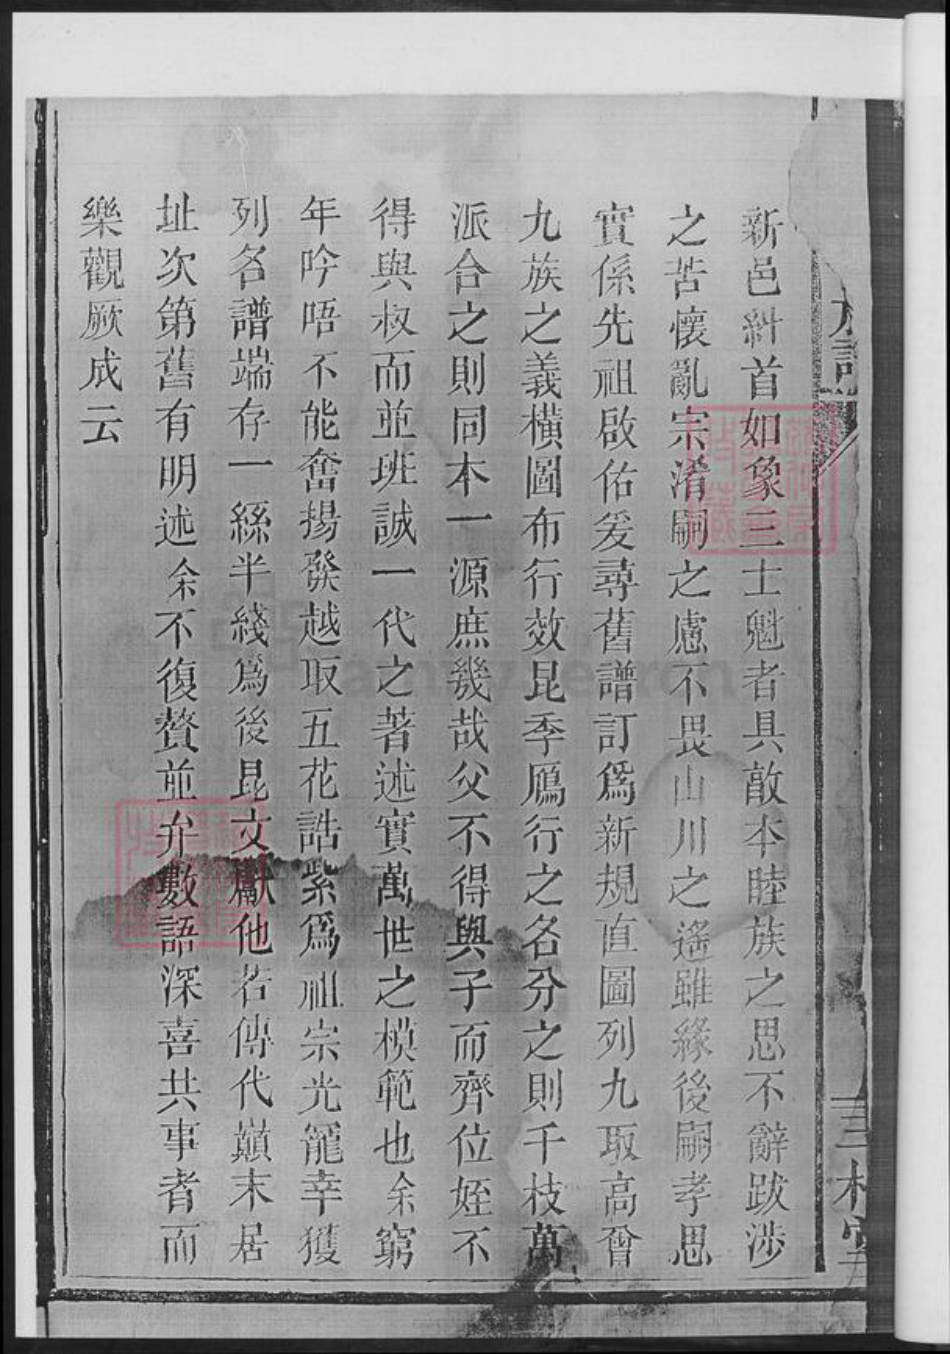 新邑紏首如象三士魁者具敵本睦族之思不辭跋涉
之苦懷亂宗淆嗣之慮不畏山川之遙雖緣後嗣孝思
實係先祖啟佑爰尋舊譜訂為新規直圖列九取高曾
九族之義橫圖布行效昆季鴈行之名分之則千枝萬
派合之則同本一源庶幾哉父不得與子而齊位姪不
得與叔而並班誠一代之著述實萬世之模範也余窮
年吟唔不能奮揚發越取五花誥紫爲祖宗光寵幸獲
列名譜端存一絲半綫爲後昆文獻他若傳代巔末居
址次第舊有明述余不復贅並弁數語深喜共事者而
樂觀厥成云